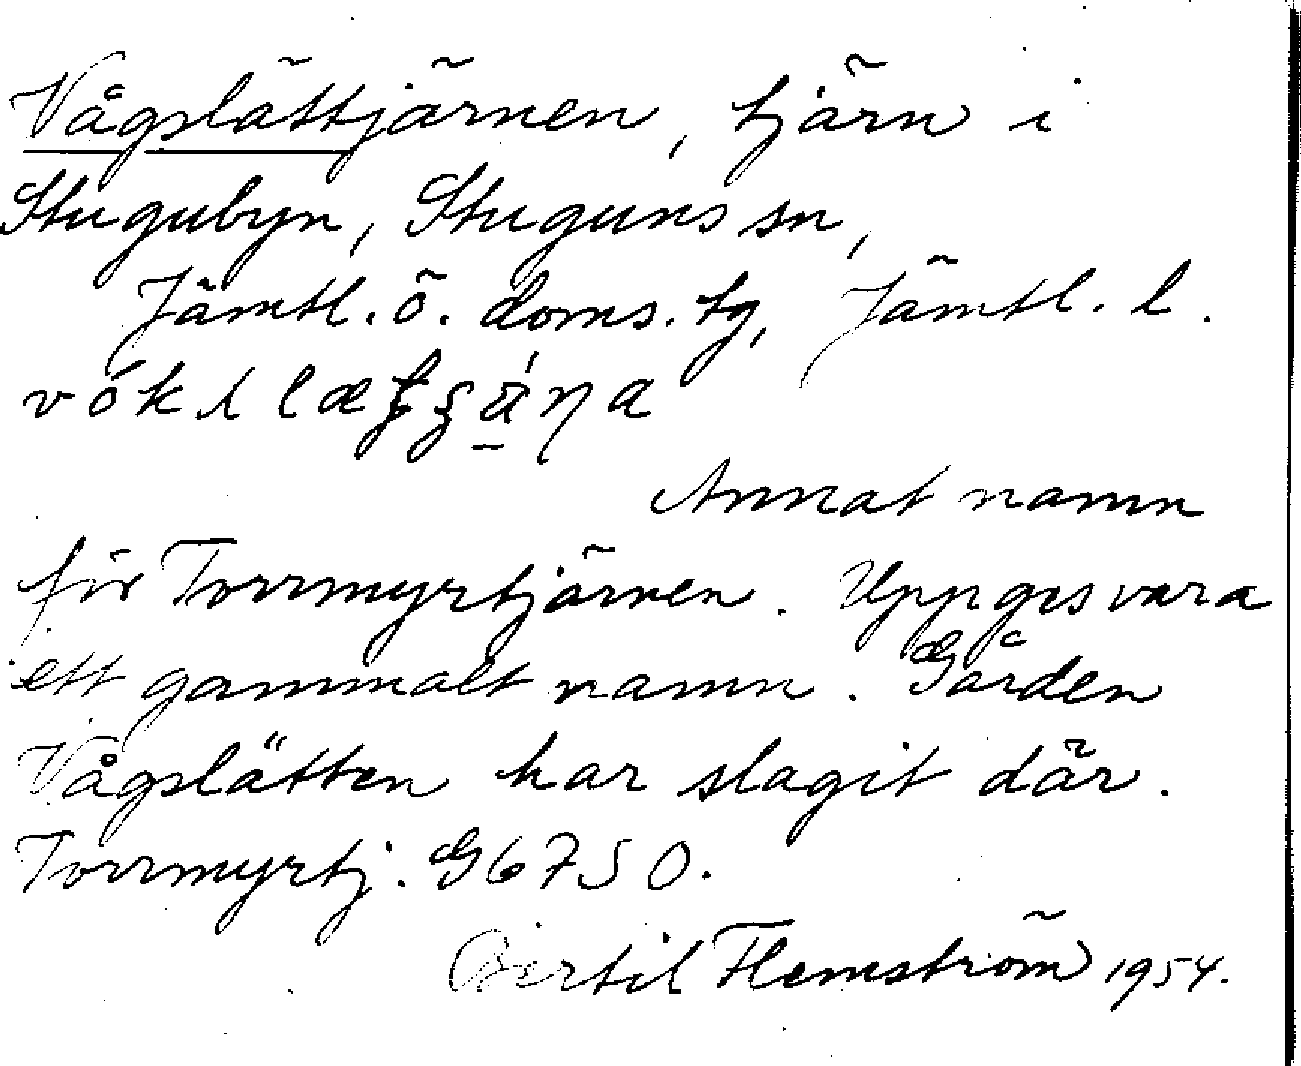 Vågslättjärnen, tjärn i
Stugubyn, Stuguns sn,
Jämtl. ö. doms. tg, Jämtl. l.
Annat namn
för Torrmyrtjärnen. Uppges vara
ett gammalt namn. Gården
Vågslätten har slagit där.
Torrmyrtj. G6750.
Bertil Flemström 1954.